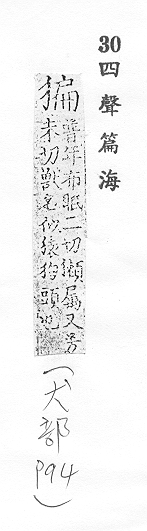 30四聲篇海
猵普年布眠二切獺屬又芳
未切獸名似猿狗頭也
(犬部 P94)